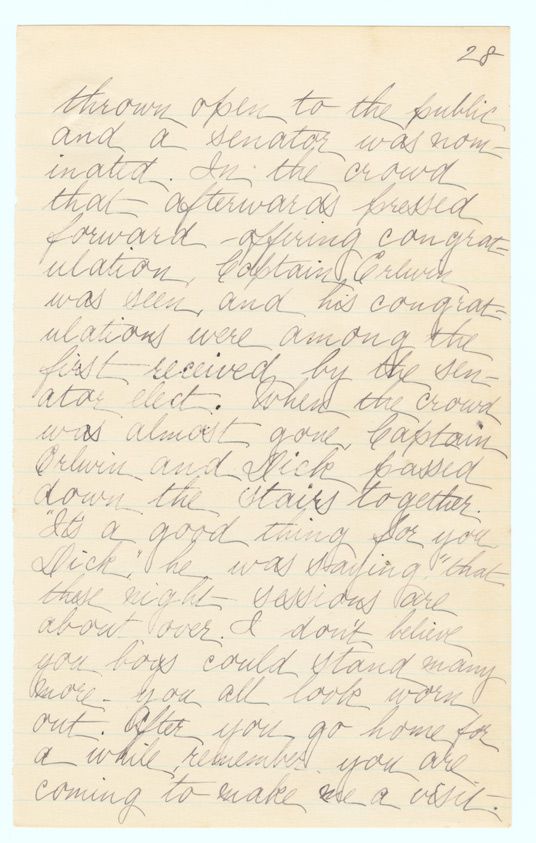 28
thrown open to the public
and a senator was nom-
inated. In the crowd
that afterwards pressed
forward offering congrat=
ulation, Captain Erlwin
was seen, and his congrat=
ulations were among the
first received by the sen-
ator elect. When the crowd
was almost gone, Captain
Erlwin and Dick passed
down the stairs together.
"Its a good thing for you
Dick," he was saying, "that
these night sessions are
about over. I don't believe
you boys could stand many
more. you all look worn
out. After you go home for
a while, remember you are
coming to make me a visit.